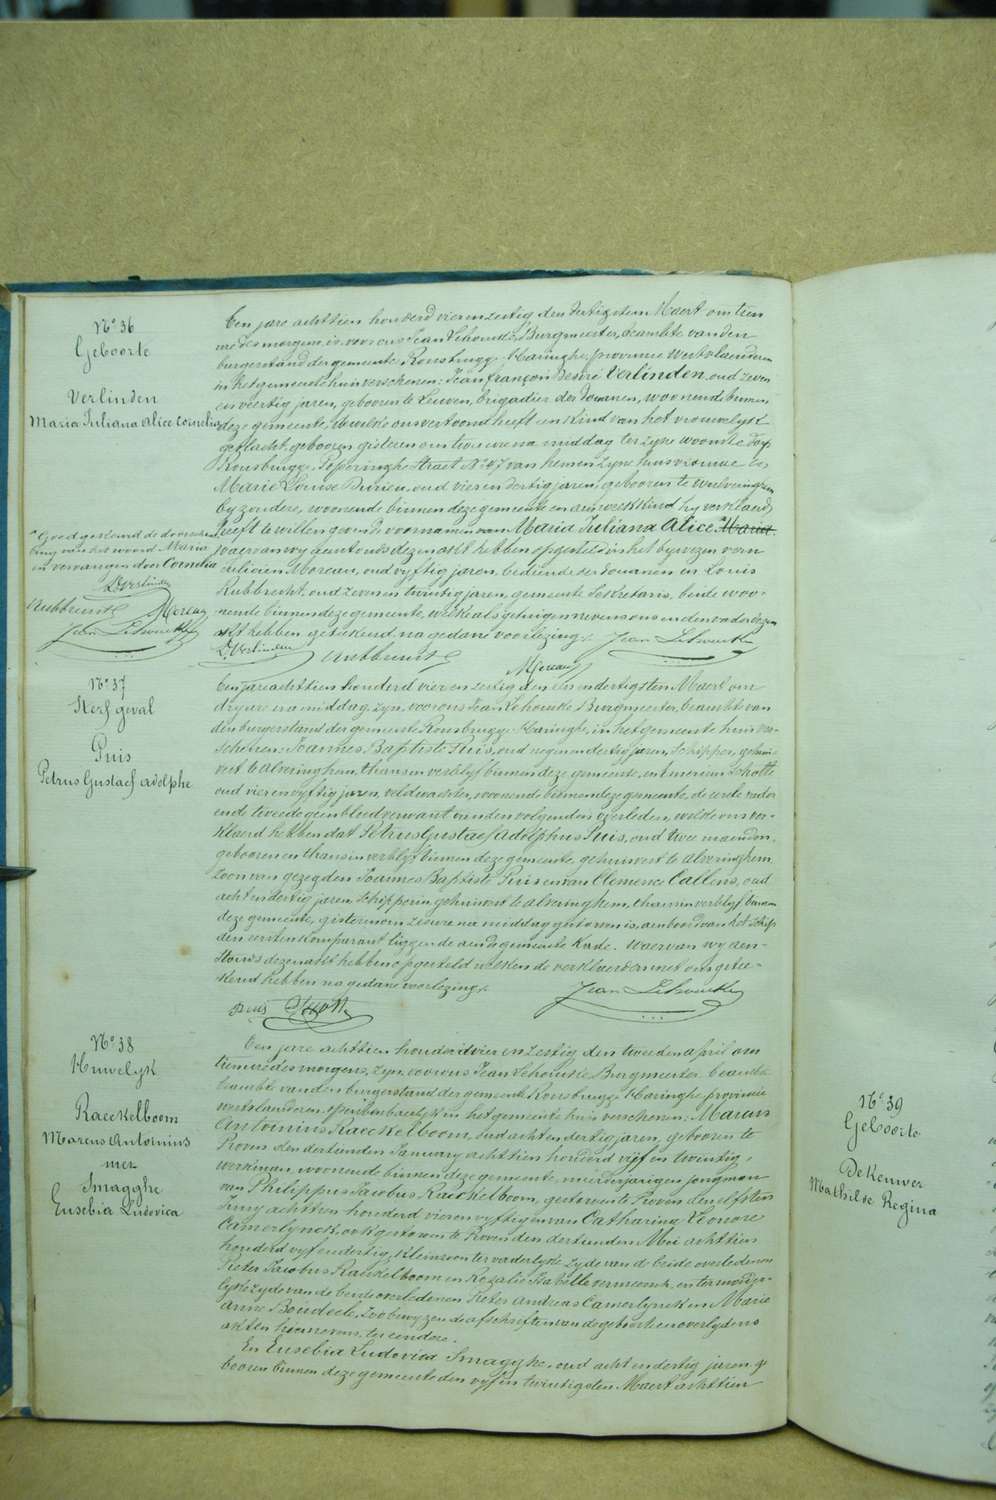 N° 36
Geboorte
Verlinden
Maria Juliana Alice Cornelia
Een jare achttien honderd vier en zestig den dertigsten Maert om tien
ure des morgens, is voor ons Jean Lehoucke Burgmeester, beambte van den
burgerstand der gemeente Rousbrugge-Haringhe, provincie Westvlaenderen
in het gemeente huis verschenen: Jean François Desiré Verlinden, oud zeven
en veertig jaren, geboren te Leuven, brigadier der douanen, woonende binnen
deze gemeente, dewelke ons vertoond heeft een kind van het vrouwelyk
geslacht, geboren gisteren om twee ure na middag ter zyne woonste
Rousbrugge, Poperinghe Straet N° 47 van hem en zyne huisvrouwe
Marie Louise Durieu, oud vier en dertig jaren, geboren te Wulveringhem
byzondere, woonende binnen deze gemeente en aen welk kind hy verklaerd
heeft te willen geven de voornamen van Maria Juliana Alice Maria
waervan wy aenstonds dezen akt hebben opgesteld in het bywezen van
Moreau, oud vyftig jaren, bediende der douanen en Louis
Rubbrecht, oud zeven en twintig jaren, gemeente sekretaris, beide woo-
nende binnen deze gemeente, welke als getuigen nevens ons en den vader dezen
akt hebben geteekend na gedane voorlezing. Jean Lehoucke
D. Verlinden Rubbrecht
Moreau
Goedgekeurd de doorschrab-
bing van het woord Maria
en vervangen door Cornelia
D. Verlinden
Rubbrecht Moreau
Jean Lehoucke
N° 37
Sterfgeval
Puis
Petrus Gustaef Adolphe
Een jare achttien honderd vier en zestig den een en dertigsten Maert om
dry ure na middag, zyn voor ons Jean Lehoucke Burgmeester, beambte van
den burgerstand der gemeente Rousbrugge-Haringhe, in het gemeente huis ver-
schenen: Joannes Baptiste Puis, oud negen en dertig jaren, schipper, gehuis-
vest te Alveringhem, thans in verblyf binnen deze gemeente, en
oud vier en vyftig jaren, veldwachter, woonende binnen deze gemeente, de eerste vader
en de tweede geen bloedverwant van den volgenden overleden, welke ons ver-
klaerd hebben dat Petrus Gustaef Adolphus Puis, oud twee maenden,
geboren en thans in verblyf binnen deze gemeente, gehuisvest te Alveringhem
zoon van gezegden Joannes Baptiste Puis en van Clemence Callens, oud
acht en dertig jaren, schipperin, gehuisvest te Alveringhem, thans in verblyf binnen
deze gemeente, gisteren om zes ure na middag gestorven is, aen boord van het schip
den eersten komparant liggende aen de gemeente Kade. Waervan wy aen-
stonds dezen akt hebben opgesteld welken de verklaerders met ons getee-
kend hebben na gedane voorlezing. Jean Lehoucke
Puis
N° 38
Huwelyk
Raeckelboom
Marcus Antonius
met
Smagghe
Eusebia Ludovica
Een jare achttien honderd vier en zestig den tweeden april om
tien ure des morgens, zyn voor ons Jean Lehoucke Burgmeester
beambte van den burgerstand der gemeente Rousbrugge-Haringhe provincie
westvlaenderen, openbaerlyk in het gemeente huis verschenen: Marcus
Antonius Raeckelboom, oud acht en dertig jaren, geboren te
Proven den January achttien honderd vyf en twintig,
werkman, woonende binnen deze gemeente, meerderjarigen jongman
van Philippus Jacobus Raeckelboom, gestorven te Proven den elfsten
Juny achttien honderd vier en vyftig en van Catharina Leonore
Camerlynck, ook gestorven te Proven den dertienden Mei achttien
honderd vyf en dertig, kleinzoon ter vaderlyke zyde van de beide overledenen
Pieter Jacobus Raeckelboom en Rozalie Isabelle Vermeersch, en ter moeder-
lyke zyde van de beide overledenen Pieter Andreas Camerlynck en Marie
Anne Boudeele, zoo bewyzen de afschriften van de geboorte en overlydens
akten hier nevens, ter eendere.
En Eusebia Ludovica Smagghe, oud acht en dertig jaren, ge-
boren binnen deze gemeente den vyf en twintigsten Maert achttien
N° 39
Geboorte
DeKeuwer
Mathilde Regina